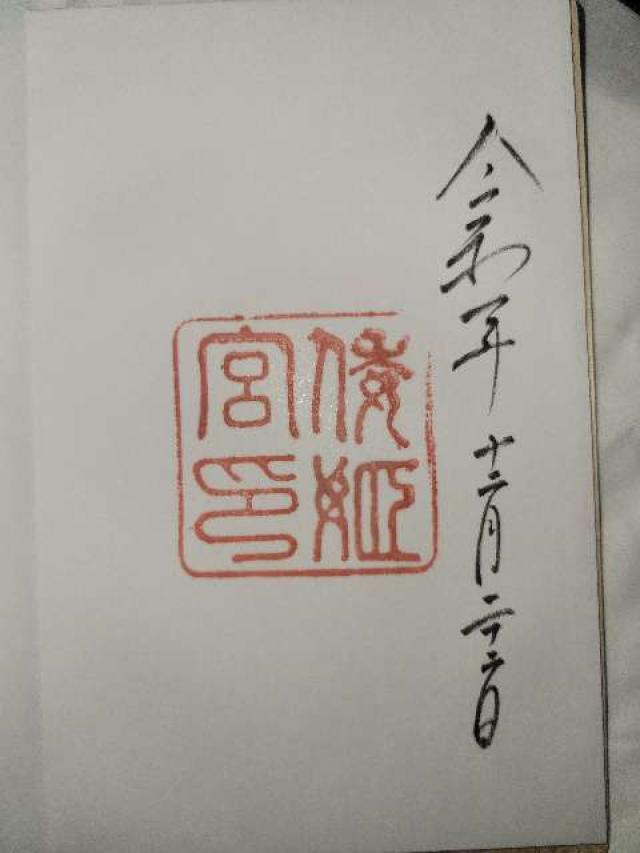 令和年十二月二十二日
倭姫
宮印